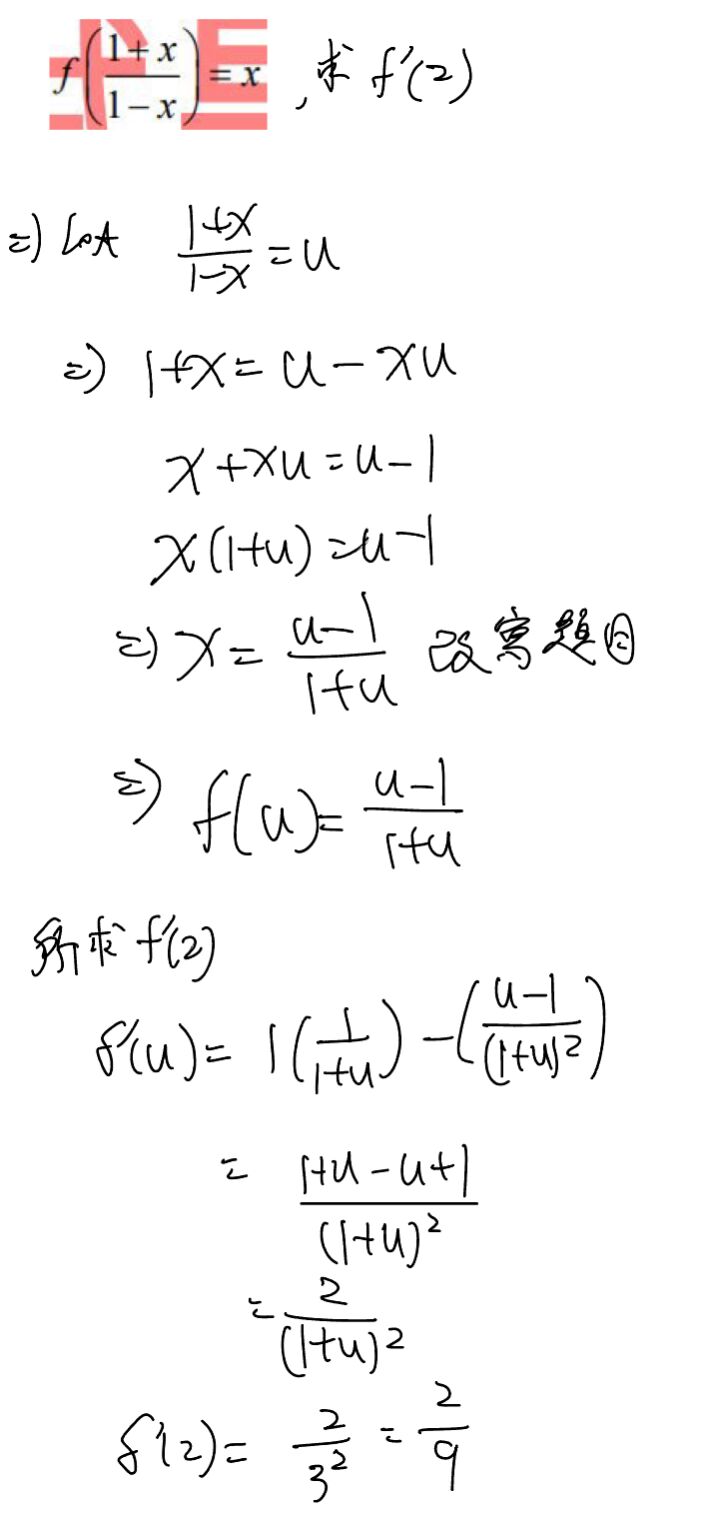 f((1+x)/(1−x)) = x , 求 f'(2)
⇒) Let (1+x)/(1−x) = u
⇒) 1+x = u − xu
x + xu = u − 1
x(1+u) = u − 1
⇒) x = (u−1)/(1+u) 改寫題目
⇒) f(u) = (u−1)/(1+u)
所求 f'(2)
f'(u) = 1(1/(1+u)) − ((u−1)/(1+u)²)
= (1+u−u+1)/(1+u)²
= 2/(1+u)²
f'(2) = 2/3² = 2/9